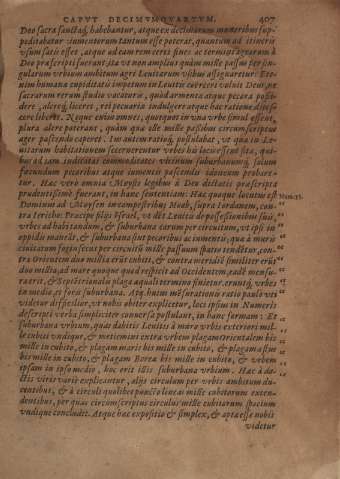 CAPVT DECIMVMQVARTVM. 407
Deo sacra sanctáq, habebantur, atque ex decimarum muneribus sup-
peditabatur iumentorum tantum esse poterat, quantum ad itineris
vsum satis esset, atque ad eam rem certi fines ac termini agrorum à
Deo præscripti fuerant: ita vt non amplius quàm mille passus per sin-
gularum vrbium ambitum agri Leuitarum vsibus assignaretur. Ete-
nim humana cupiditatis impetum in Leuitis coerceri voluit Deus, ne
sacrarum rerum studia vacaturis, quòd armenta atque pecora possi-
dere, aleréq, liceret, rei pecuaria indulgere atque hac ratione disce-
cere liberet. Neque enim omnes, quotquot in vna vrbe simul essent,
plura alere poterant, quàm qua ille mille passibus circumscriptus
ager pascendo caperet. Iam autem ratióq, postulabat, vt qua in Le-
uitarum habitationem secernerentur vrbes his locis essent sita, qui-
bus ad iam indicatas commoditates vicinum suburbanumq, solum
fæcundum pecoribus atque iumentis pascendis idoneum probare-
tur. Hac verò omnia Moysis legibus à Deo dictatis præscripta
prudentissimè fuerant, in hanc sententiam: Hac quoque locutus est Num.35.
Dominus ad Moysen in campestribus Moab, supra Iordanem, con-
tra Iericho: Præcipe filijs Israel, vt dẽt Leuitis de possessionibus suis,
vrbes ad habitandum, & suburbana earum per circuitum, vt ipsi in
oppidis maneãt, & suburbana sint pecoribus ac iumentis; qua à muris
ciuitatum forinsecus per circuitũ mille passuum spatio tendẽtur, con-
tra Orientem duo millia erũt cubiti, & contra meridiẽ similiter erũt
duo millia, ad mare quoque quod respicit ad Occidentem, eadẽ mensu-
ra erit, & Septẽtrionalis plaga aquali termino finietur. eruntq, vrbes
in medio, et foris suburbana. Atq, huius mẽsurationis ratio paulò vt
videtur difficilior, vt nobis obiter explicetur, loci ipsius in Numeris
descripti verba simpliciter conuersa postulant, in hanc formam: Et
suburbana vrbium, quas dabitis Leuitis à muro vrbis exteriori mil-
le cubiti vndique, & metiemini extra vrbem plagam orientalem bis
mille in cubito, & plagam maris bis mille in cubito, & plagam austri
bis mille in cubito, & plagam Borea bis mille in cubito, & vrbem
ipsam in ipso medio, hoc erit illis suburbana vrbium. Hac à do-
ctis viris variè explicantur, alijs circulum per vrbis ambitum du-
centibus, & à circuli quolibet puncto lineas mille cubitorum exten-
dentibus, per quas circumscriptus circulus mille cubitorum spacium
vndique concludit. Atque hæc expositio & simplex, & apta esse nobis
videtur